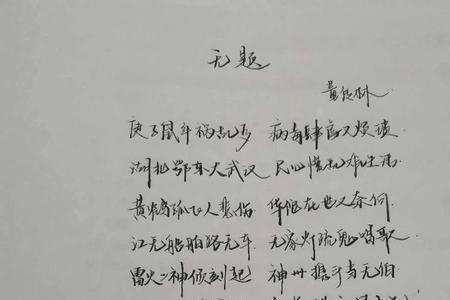 无题
黄
庚子鼠年祸乱多 病毒肆虐又烦琐
湖北鄂东大武汉 民心慌乱难生活
黄鹤孤飞人悲伤 华佗在世又奈何
江无船舶路无车 无家灯疏鬼唱歌
雷火二神倾刻起 神州携手当无